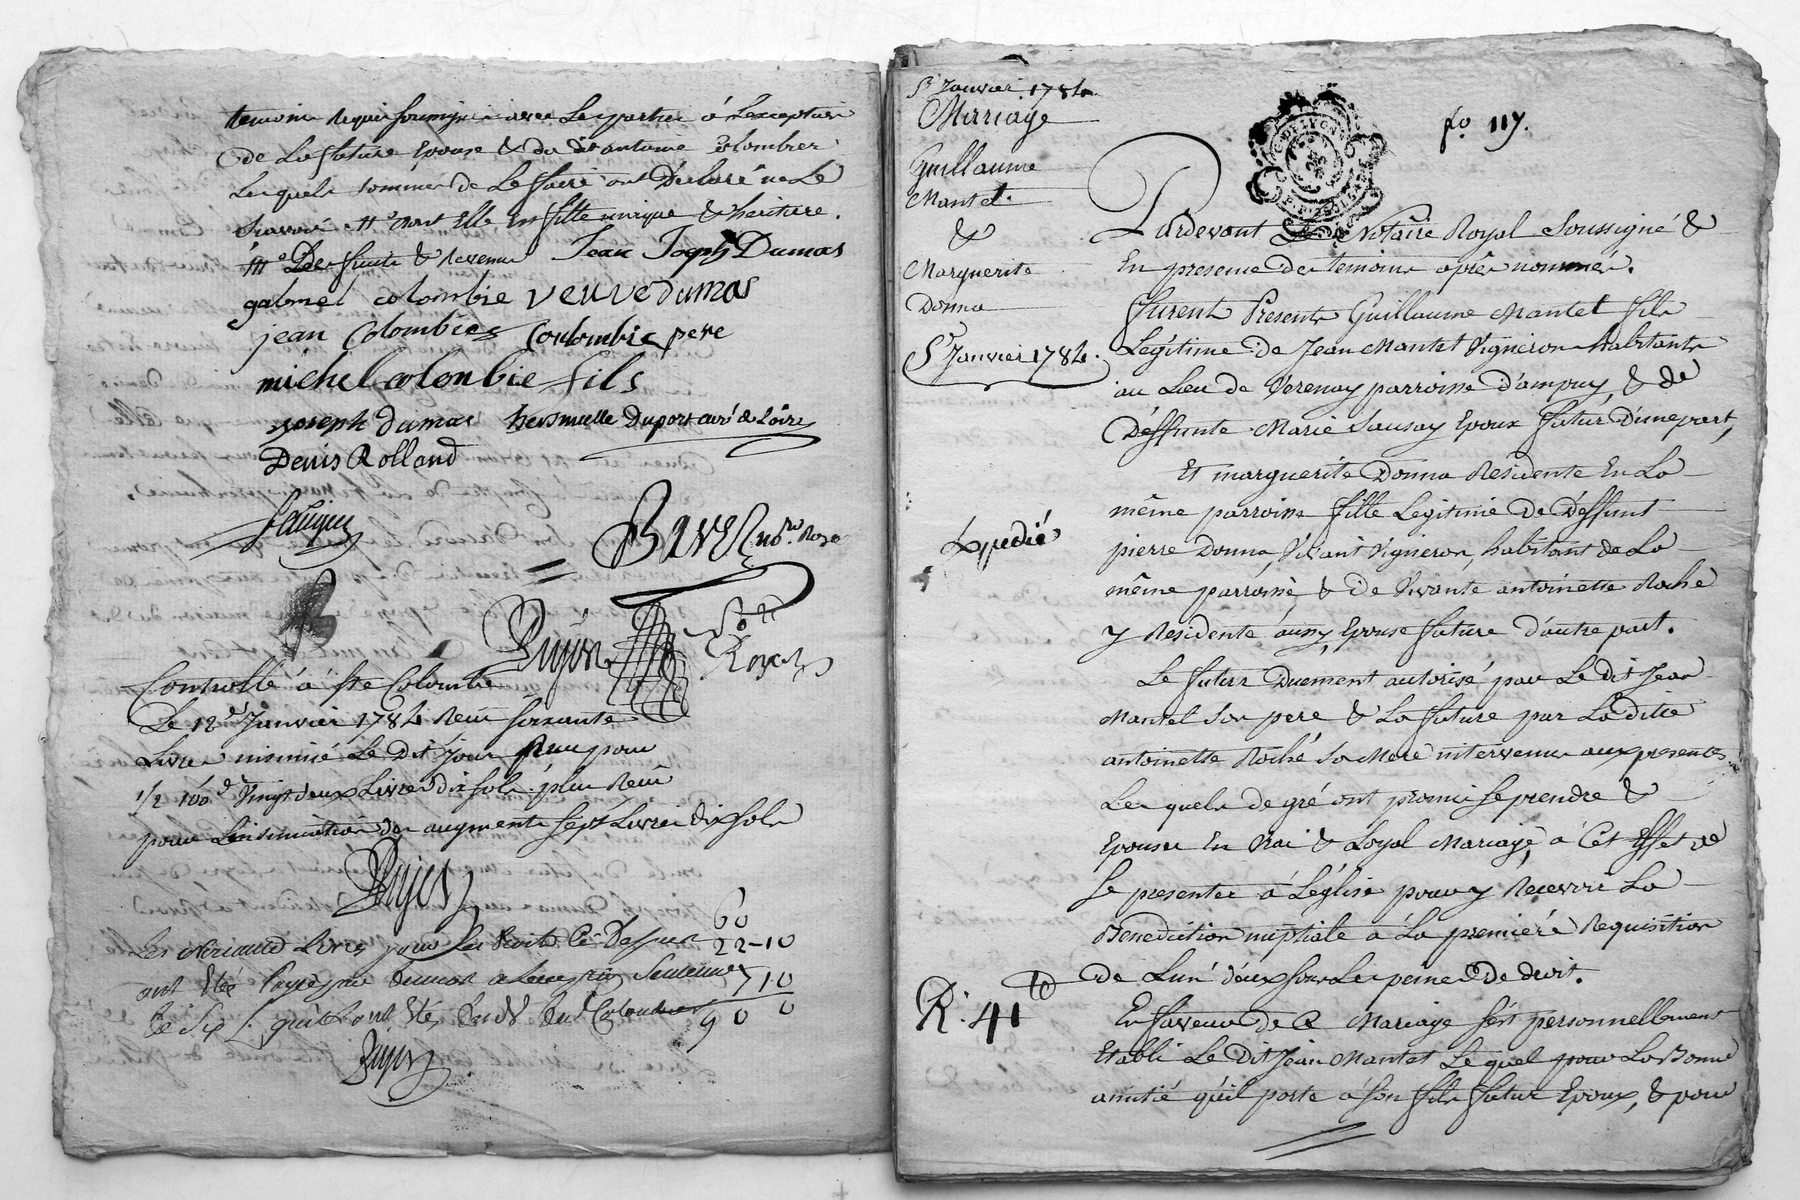 temoins requis soussignés avec les parties à l'exception
de La future Epouse & du dit antoine Colombier
Lesquels sommés de Le faire ont Déclaré ne Le
Scavoir. dont Elle Est fille unique & heritiere.
fruits & Revenus Jean Joseph Dumas
gabriel colombie veuve dumas
jean Colombier Coulombie pere
michel colonbie fils
joseph dumas Duport curé de Loire
Denis Rolland
Bovet no.re Royal
Dujon
Controllé à Ste Colombe
Le 12e Janvier 1784 Reçu soixante
Livres insinué Le Dit jour Reçu pour
1/2 100e Vingt deux Livres dix sols. plus Reçu
pour L'insinuation des augments sept Livres dix sols
Dujon
60
Les Livres pour Les Droits Cy Dessus 22-10
ont Eté 7 10
90 0
Dujon
5e Janvier 1784
Mariage
Guillaume
Mantel.
&
Marguerite
Donna
5e Janvier 1784.
Expedié
R. 41
fo. 117.
G. DE LYON
Pardevant Le Notaire Royal Soussigné &
En presence des temoins après nommés.
furent Presents Guillaume Mantel fils
Legitime de Jean Mantel Vigneron habitants
au Lieu de Verenay parroisse D'ampuy, & de
Déffunte Marie Sausay Epoux futur D'une part,
Et marguerite Donna Residente En La
même parroisse fille Legitime de Déffunt
pierre Donna, Vivant Vigneron, habitant de La
même parroisse, & de Vivante antoinette Roche
y Residente aussy, Epouse future d'autre part.
Le futur Duement autorisé par Le Dit Jean
Mantel Son pere & La future par La ditte
antoinette Roche Sa Mere intervenus aux presentes
Lesquels de gré ont promis Se prendre &
Epouser En Vrai & Loyal Mariage, à Cet Effet de
Se presenter à L'église pour y Recevoir La
Bénédiction nuptiale à La premiere Requisition
de L'un d'eux sous Les peines De droit.
En faveur de Ce Mariage s'est personnellement
Etabli Le Dit Jean Mantel Le quel pour La Bonne
amitié qu'il porte à Son fils futur Epoux, & pour